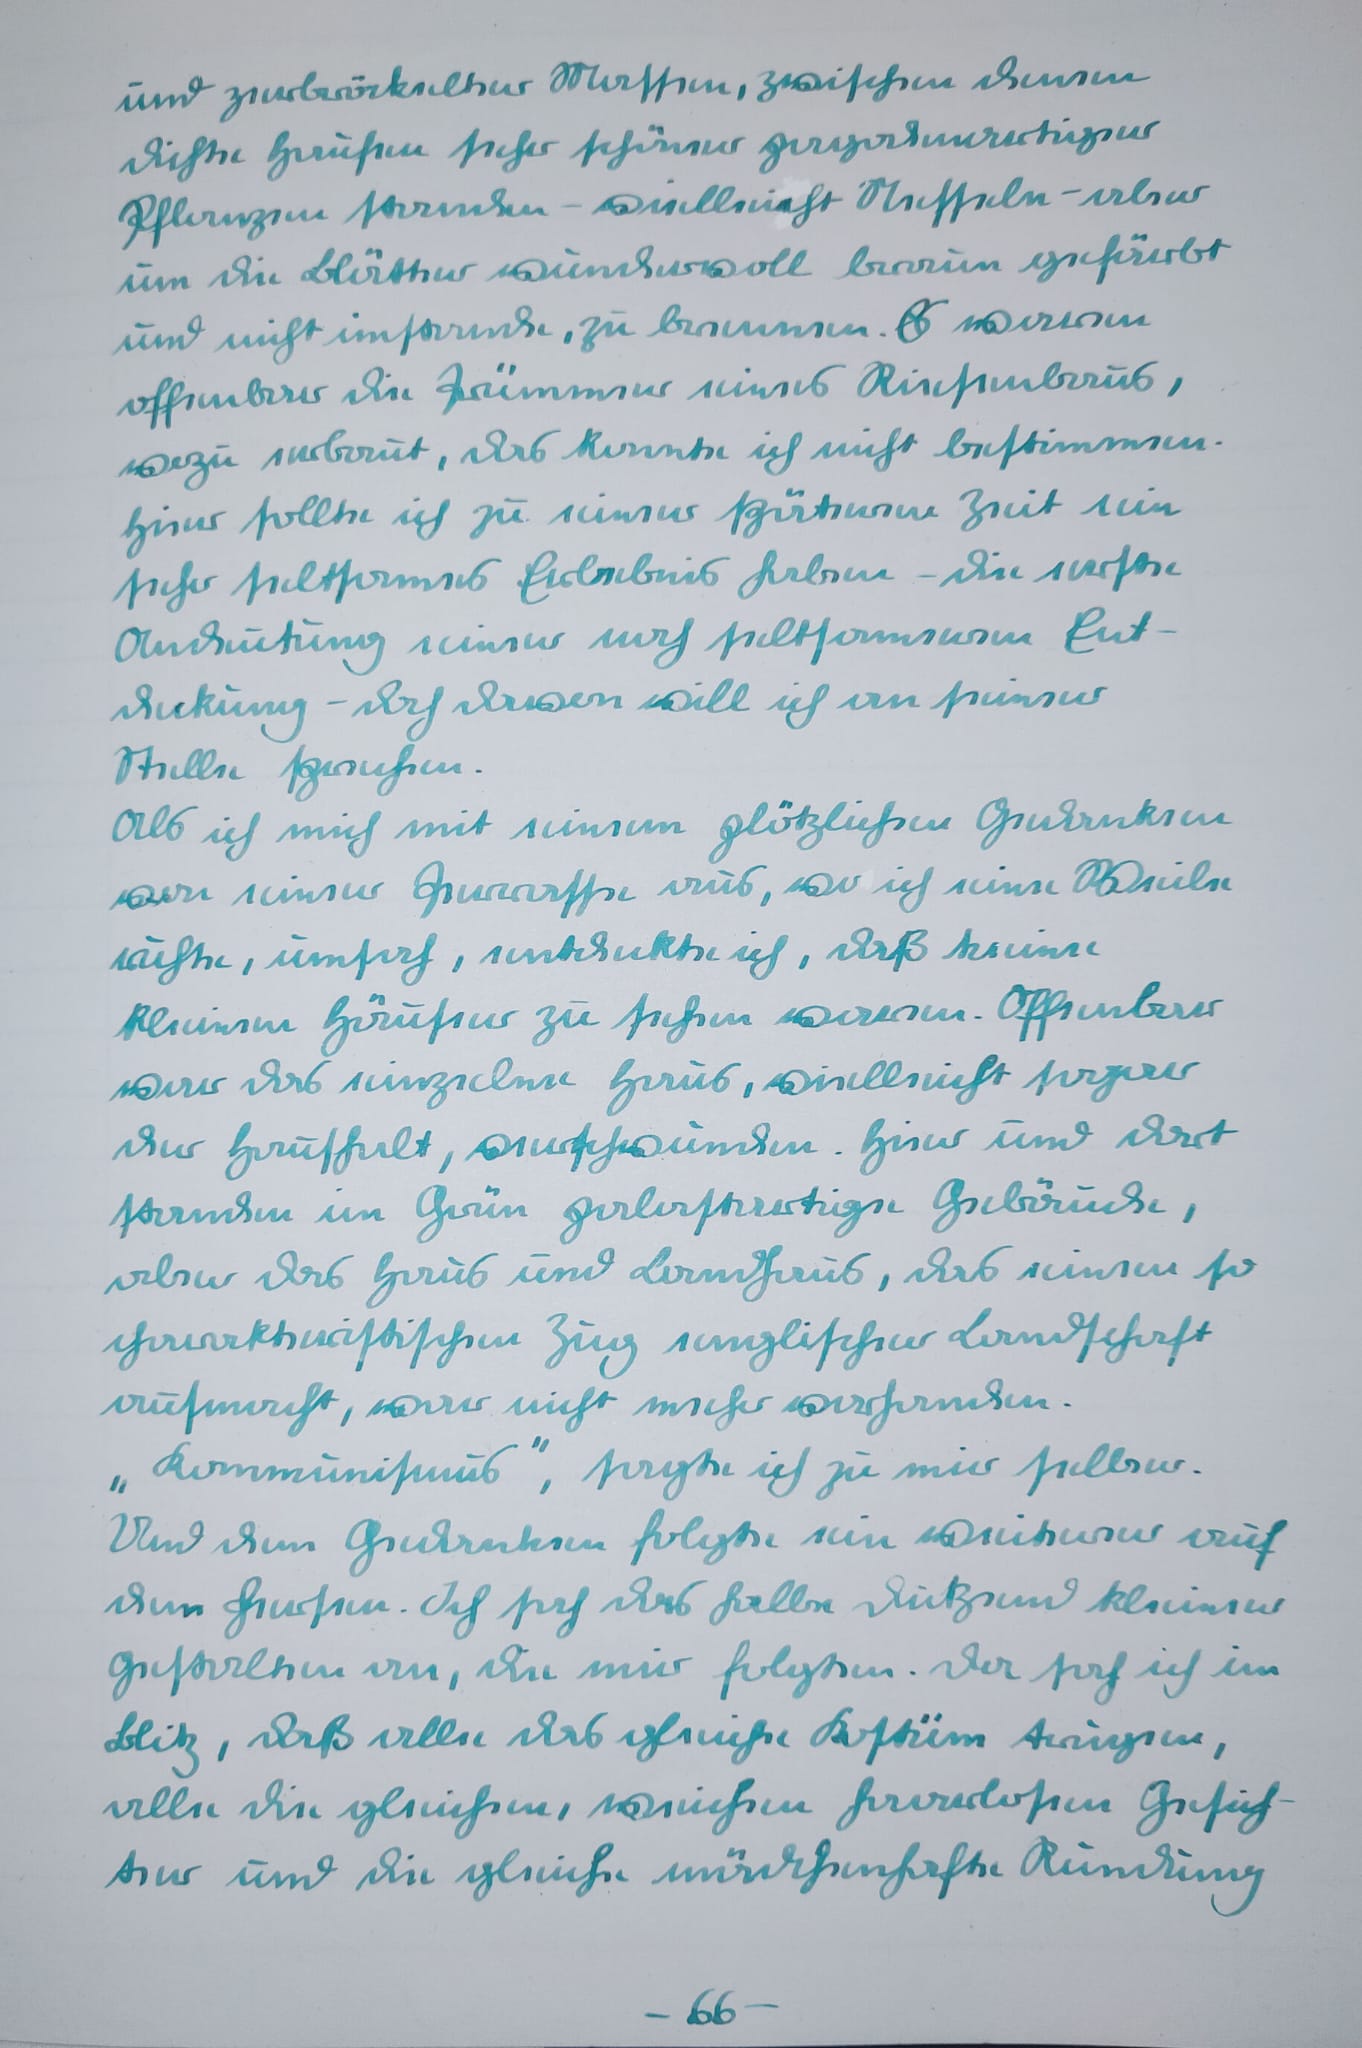 und zerbröckelter Massen, zwischen denen
dichte Haufen sehr schöner pagodenartiger
Pflanzen standen – vielleicht Nesseln – aber
um die Blätter wundervoll braun gefärbt
und nicht imstande, zu brennen. Es waren
offenbar die Trümmer eines Riesenbaus,
wozu erbaut, das konnte ich nicht bestimmen.
Hier sollte ich zu einer späteren Zeit ein
sehr seltsames Erlebnis haben – die erste
Andeutung einer noch seltsameren Ent-
deckung – doch davon will ich an seiner
Stelle sprechen.
Als ich mich mit einem plötzlichen Gedanken
von einer Terrasse aus, wo ich eine Weile
ruhte, umsah, entdeckte ich, daß keine
kleinen Häuser zu sehen waren. Offenbar
war das einzelne Haus, vielleicht sogar
der Haushalt, verschwunden. Hier und dort
standen im Grün palastartige Gebäude,
aber das Haus und Landhaus, das einen so
charakteristischen Zug englischer Landschaft
ausmacht, war nicht mehr vorhanden.
„Kommunismus”, sagte ich zu mir selber.
Und dem Gedanken folgte ein weiterer auf
den Fersen. Ich sah das halbe Dutzend kleiner
Gestalten an, die mir folgten. Da sah ich im
Blitz, daß alle das gleiche Kostüm trugen,
alle die gleichen, weichen haarlosen Gesich-
ter und die gleiche mädchenhafte Rundung
– 66 –